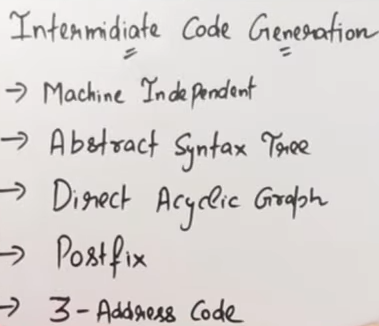 Intermidiate Code Generation
→ Machine Independent
→ Abstract Syntax Tree
→ Direct Acyclic Graph
→ Postfix
→ 3-Address Code